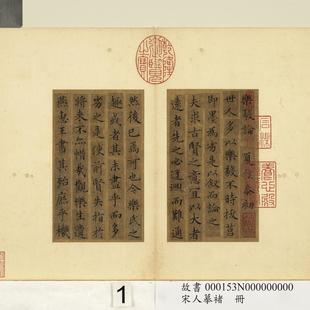 樂毅論 夏侯泰初
世人多以樂毅不時拔莒
即墨為劣是以叙而論之
夫求古賢之意宜以大者
遠者先之必迂迴而難通
然後已焉可也今樂氏之
趣或者其未盡乎而多
劣之是使前賢失指於
將來不亦惜哉觀樂生遺
燕惠王書其殆庶乎機
1
故書 000153N000000000
宋人摹褚 冊